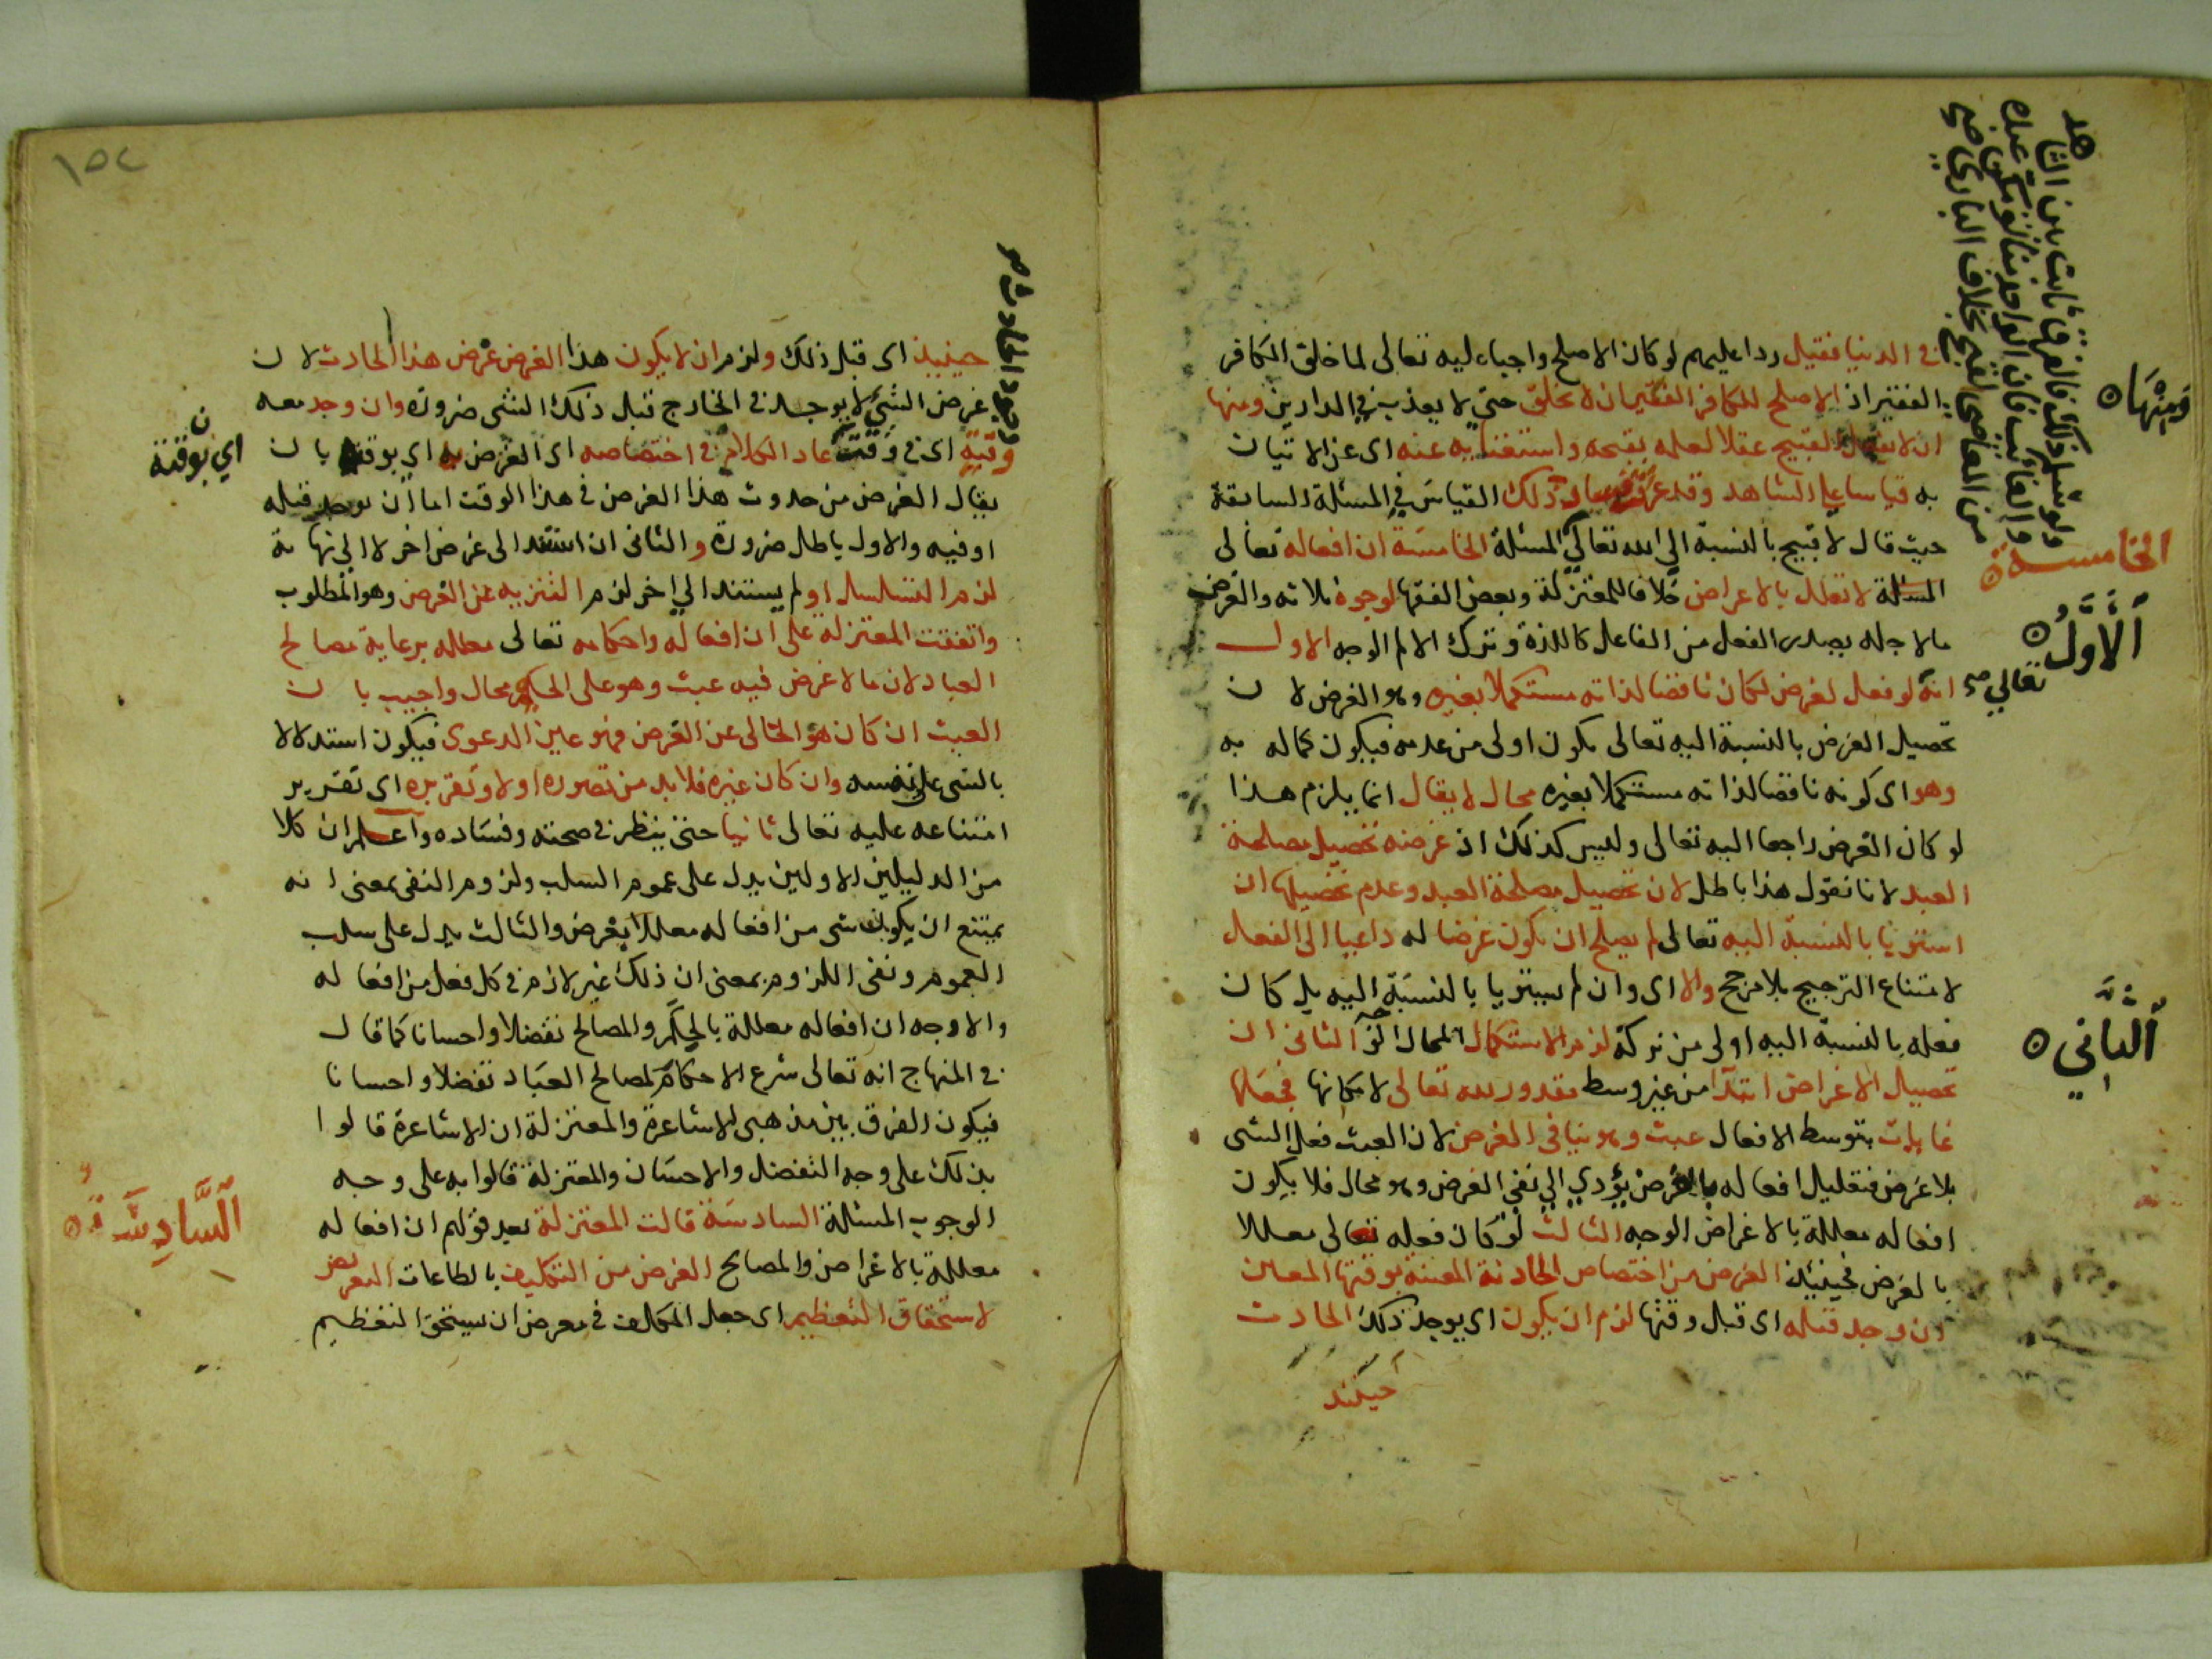 في الدنيا فقيل ردا عليهم لو كان الاصلح واجبا عليه تعالى لما خلق الكافر
الفقير اذ الاصلح للكافر الفقير ان لا يخلق حتى لا يعذب في الدارين ومنها
ان لا يفعل القبيح عقلا لعلمه بقبحه واستغنايه عنه اى عن الاتيان
به قياسا على الشاهد وقد عرفت ذلك القياس في المسئلة السابقة
حيث قال لا قبيح بالنسبة الى الله تعالى المسئلة الخامسة ان افعاله تعالى
لا تعلل بالاعراض خلافا للمعتزلة وبعض الفقها لوجوه ثلاثه والغرض
ما لاجله يصدر الفعل من الفاعل كاللذة وترك الالم الوجه الاول
انه لو فعل لغرض لكان ناقصا لذاته مستكملا بغيره وهو الغرض لان
تحصيل الغرض بالنسبة اليه تعالى يكون اولى من عدمه فيكون كماله به
وهو اى كونه ناقصا لذاته مستكملا بغيره محال لا يقال انما يلزم هذا
لو كان الغرض راجعا اليه تعالى وليس كذلك اذ غرضه تحصيل مصلحة
العبد لانا نقول هذا باطل لان تحصيل مصلحة العبد وعدم تحصيلها ان
استويا بالنسبة اليه تعالى لم يصلح ان يكون غرضا له داعيا الى الفعل
لامتناع الترجيح بلا مرجح والا اى وان لم يستويا بالنسبة اليه بل كان
فعله بالنسبة اليه اولى من تركه لزم الاستكمال المحال الثانى ان
تحصيل الاغراض ابتدآ من غير وسط مقدور لله تعالى لامكانها فجعلها
غايات بتوسط الافعال عبث وهو ينافى الغرض لان العبث فعل الشى
بلا غرض فتعليل افعاله بالغرض يؤدي الى نفى الغرض وهو محال فلا يكون
افعاله معللة بالاغراض الوجه الثالث لو كان فعله تعالى معللا
بالغرض فحينئذ الغرض من اختصاص الحادثة المعينة بوقتها المعين
ان وجد قبله اى قبل وقتها لزم ان يكون اى يوجد ذلك الحادث
حينئذ
ومنها
الخامسة
الاول
تعالى صح
الثاني
من المعاصى القبح بخلاف البارى صح
١٥٢
حينيذ اى قبل ذلك ولزم ان لا يكون هذا الغرض غرض هذا الحادث لان
غرض الشئ لا يوجد في الخارج قبل ذلك الشى ضرورة وان وجد معه
وقته اى في وقته عاد الكلام في اختصاصه اى الغرض به اى بوقته بان
يقال الغرض من حدوث هذا الغرض في هذا الوقت اما ان يوجد قبله
او فيه والاول باطل ضرورة والثانى ان استند الى غرض اخر لا الى نهاية
لزم التسلسل او لم يستند الى اخر لزم التنزيه عن الغرض وهو المطلوب
واتفقت المعتزلة على ان افعاله واحكامه تعالى معلله برعاية مصالح
العباد لان ما لا غرض فيه عبث وهو على الحكيم محال واجيب بان
العبث ان كان هو الخالى عن الغرض فهو عين الدعوى فيكون استدلالا
بالشى على نفسه وان كان غيره فلا بد من تصوره اولا وتقريره اى تقرير
امتناعه عليه تعالى ثانيا حتى ينظر في صحته وفساده واعلم ان كلا
من الدليلين الاولين يدل على عموم السلب ولزوم النفى بمعنى انه
يمتنع ان يكون شى من افعاله معللا بغرض والثالث يدل على سلب
العموم ونفى اللزوم بمعنى ان ذلك غير لازم في كل فعل من افعاله
والاوجه ان افعاله معللة بالحكم والمصالح تفضلا واحسانا كما قال
في المنهاج انه تعالى شرع الاحكام لمصالح العباد تفضلا واحسانا
فيكون الفرق بين مذهبى الاشاعرة والمعتزلة ان الاشاعرة قالوا
بذلك على وجه التفضل والاحسان والمعتزلة قالوا به على وجه
الوجوب المسئلة السادسة قالت المعتزلة بعد قولهم ان افعاله
معللة بالاغراض والمصالح الغرض من التكليف بالطاعات التعريض
لاستحقاق التعظيم اى جعل المكلف في معرض ان يستحق التعظيم
وجود الحادث
اي بوقته
السادسة